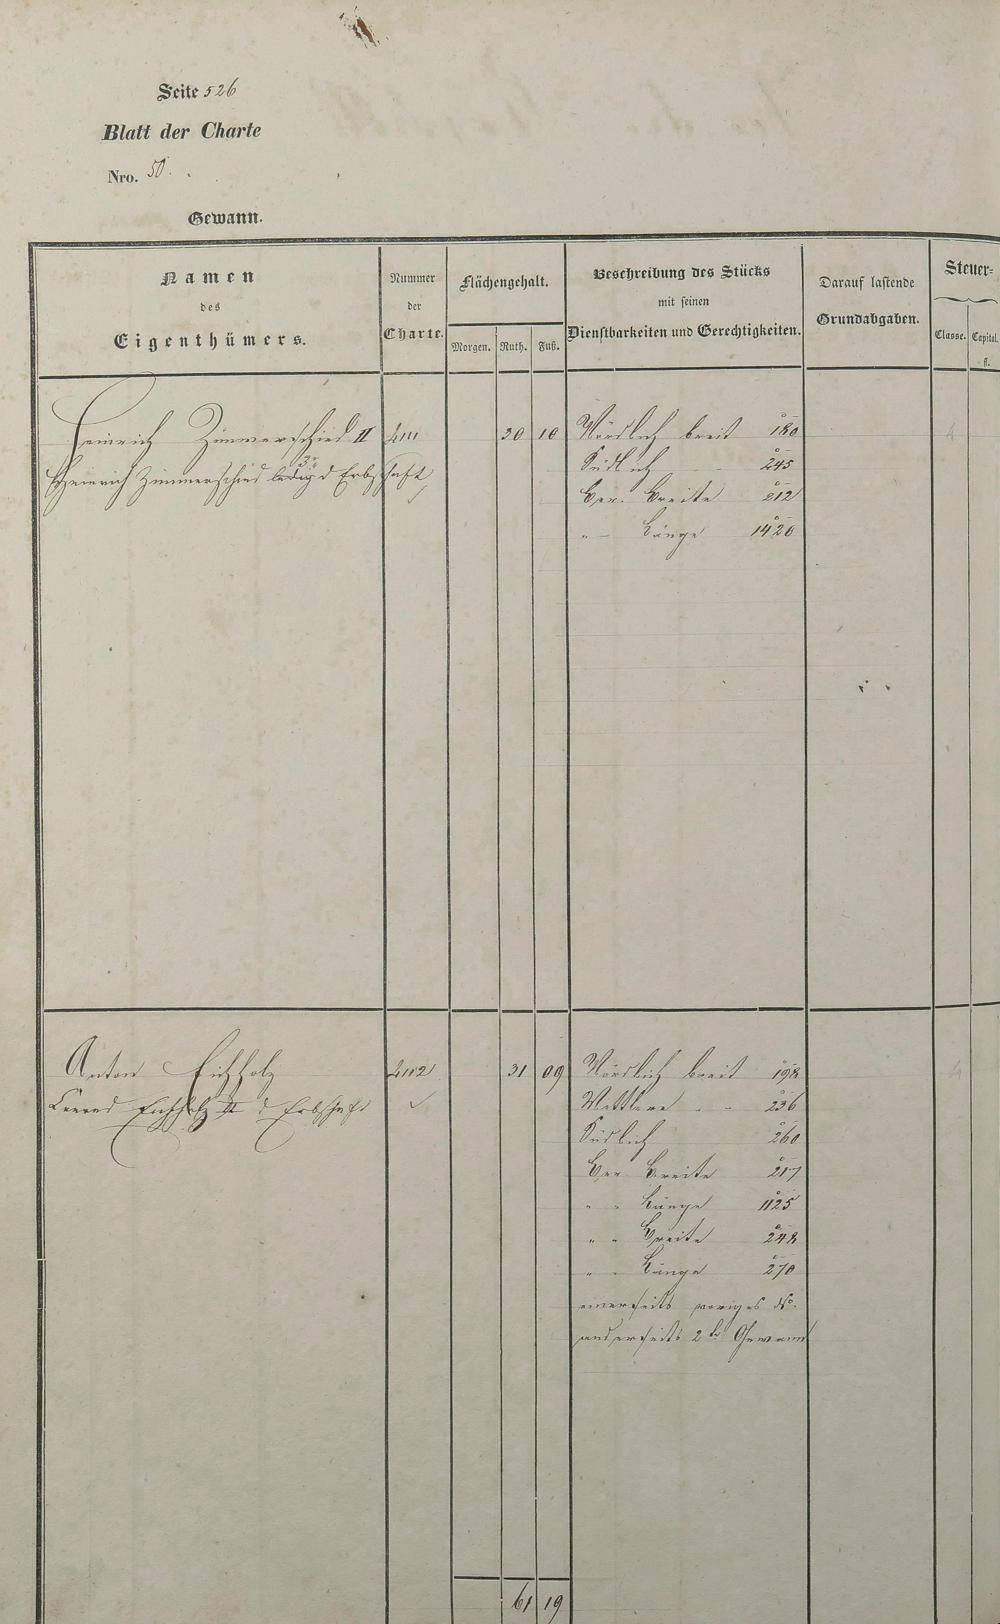 Seite 526
Blatt der Charte
Nro. 50.
Gewann.
Namen
des
Eigenthümers.
Nummer
der
Charte.
Flächengehalt.
Morgen. Ruth. Fuß.
Beschreibung des Stücks
mit seinen
Dienstbarkeiten und Gerechtigkeiten.
Darauf lastende
Grundabgaben.
Steuer-
Classe. Capital.
fl.
Heinrich Zimmerschied II 4111 30 10 Nördlich breit 180
Heinrich Zimmerschied ledig d Erbschaft Südlich 245
Ber. Breite 212
" Länge 1420
Anton Eichholz 4112 31 09 Nördlich breit 198
Eichholz II d Erbschaft Mittlere 236
Südlich 260
Ber. Breite 217
" " Länge 1125
" " Breite 248
" " Länge 270
einerseits voriges No.
anderseits 2te Gewann
61 19